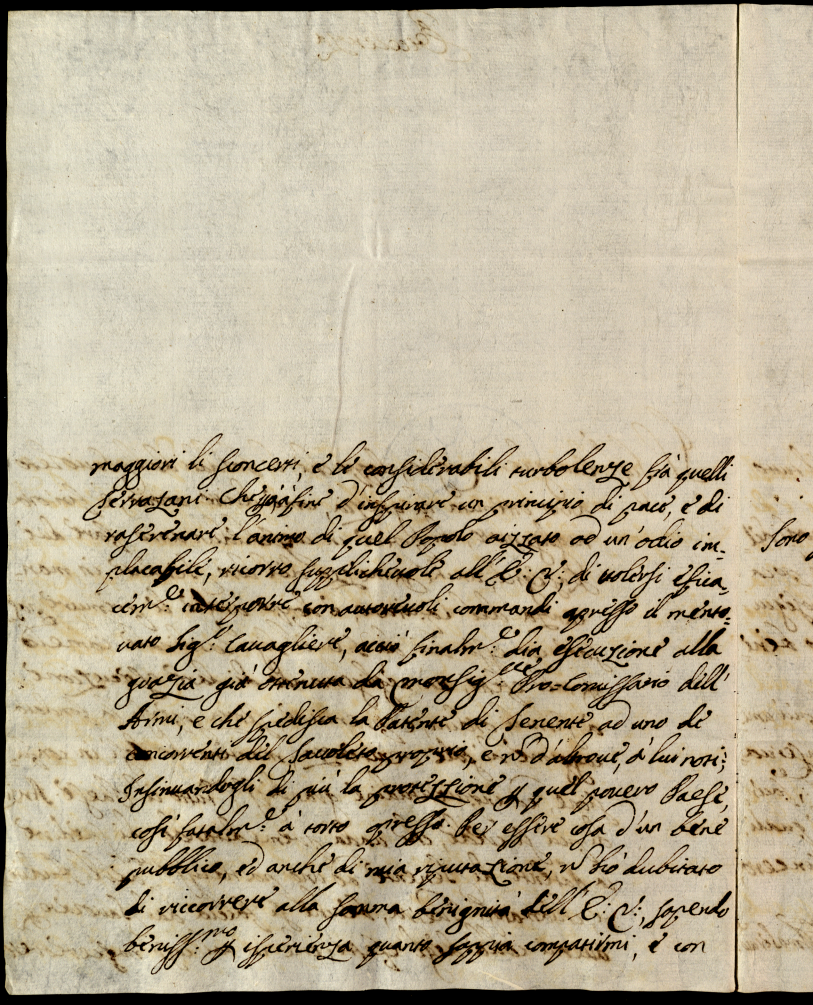 maggiori li sconcerti, e le considerabili turbolenze frà quelli
Terrazani. Che però à fine d'inspirare un principio di pace, e di
raserenare l'animo di quel Popolo aizzato ad un'odio im-
placabile, ricorro supplichevole all'E: V: di volersi efica-
cem.te interporre con autorevoli commandi apresso il mento-
vato Sig.r Cavagliere, acciò finalm.te dia esecuzione alla
grazia già ottenuta da Monsig.r Pro-Comissario dell'
Armi, e che spedisca la Patente di Tenente ad uno de
concorrenti del proprio, e n d'altrove, à lui noti;
Insinuandogli di più la protezzione p quel povero Paese,
così fatalm.te à torto opresso. Per essere cosa d'un bene
pubblico, ed anche di mia riputazione, n hò dubitato
di riccorrere alla somma benignità dell'E: V:, sapendo
beniss.mo p isperienza quanto sappia compatirmi, e con
sono